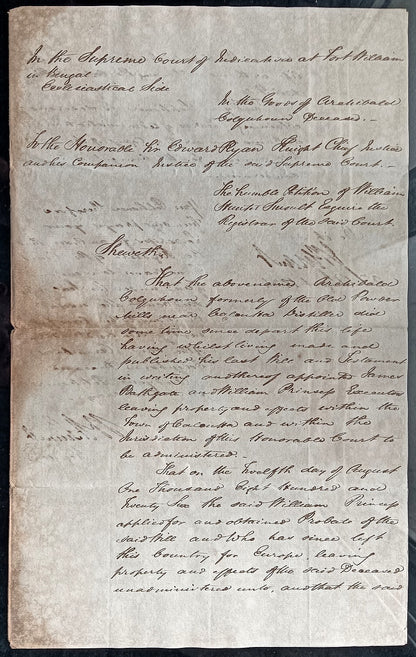 In the Supreme Court of Judicature at Fort William
in Bengal
Ecclesiastical Side
In the Goods of Archibald
Colquhoun Deceased.
To the Honorable Sir Edward Ryan Knight Chief Justice
and his Companion Justice of the said Supreme Court.
The humble Petition of William
Hunter Smoult Esquire the
Registrar of the said Court
Sheweth.
That the abovenamed Archibald
Colquhoun formerly of the Old Powder
Mills near Calcutta Distiller did
some time since depart this life
having whilst living made and
published his last Will and Testament
in writing and thereof appointed James
Bathgate and William Prinsep Executors
leaving property and effects within the
Town of Calcutta and within the
Jurisdiction of this Honorable Court to
be administered.
That on the Twelfth day of August
One Thousand Eight Hundred and
Twenty Six the said William Prinsep
applied for and obtained Probate of the
said Will and who has since left
this Country for Europe leaving
property and effects of the said Deceased
unadministered unto, and that the said